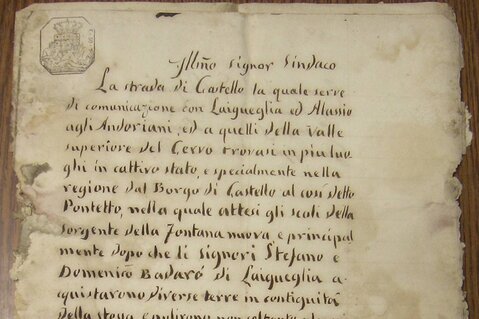 Illño Signor Sindaco
La strada di Castello la quale serve
di comunicazione con Laigueglia ed Alassio
agli Andoriani, ed a quelli della Valle
superiore del Cervo trovasi in piu luo
ghi in cattivo stato, e specialmente nella
regione dal Borgo di Castello al così detto
Pontetto, nella quale attesi gli scoli della
sorgente della Fontana nuova e principal
mente dopo che li Signori Stefano e
Domenico Badaró di Laigueglia a-
quistarono diverse terre in contiguità
della stessa e